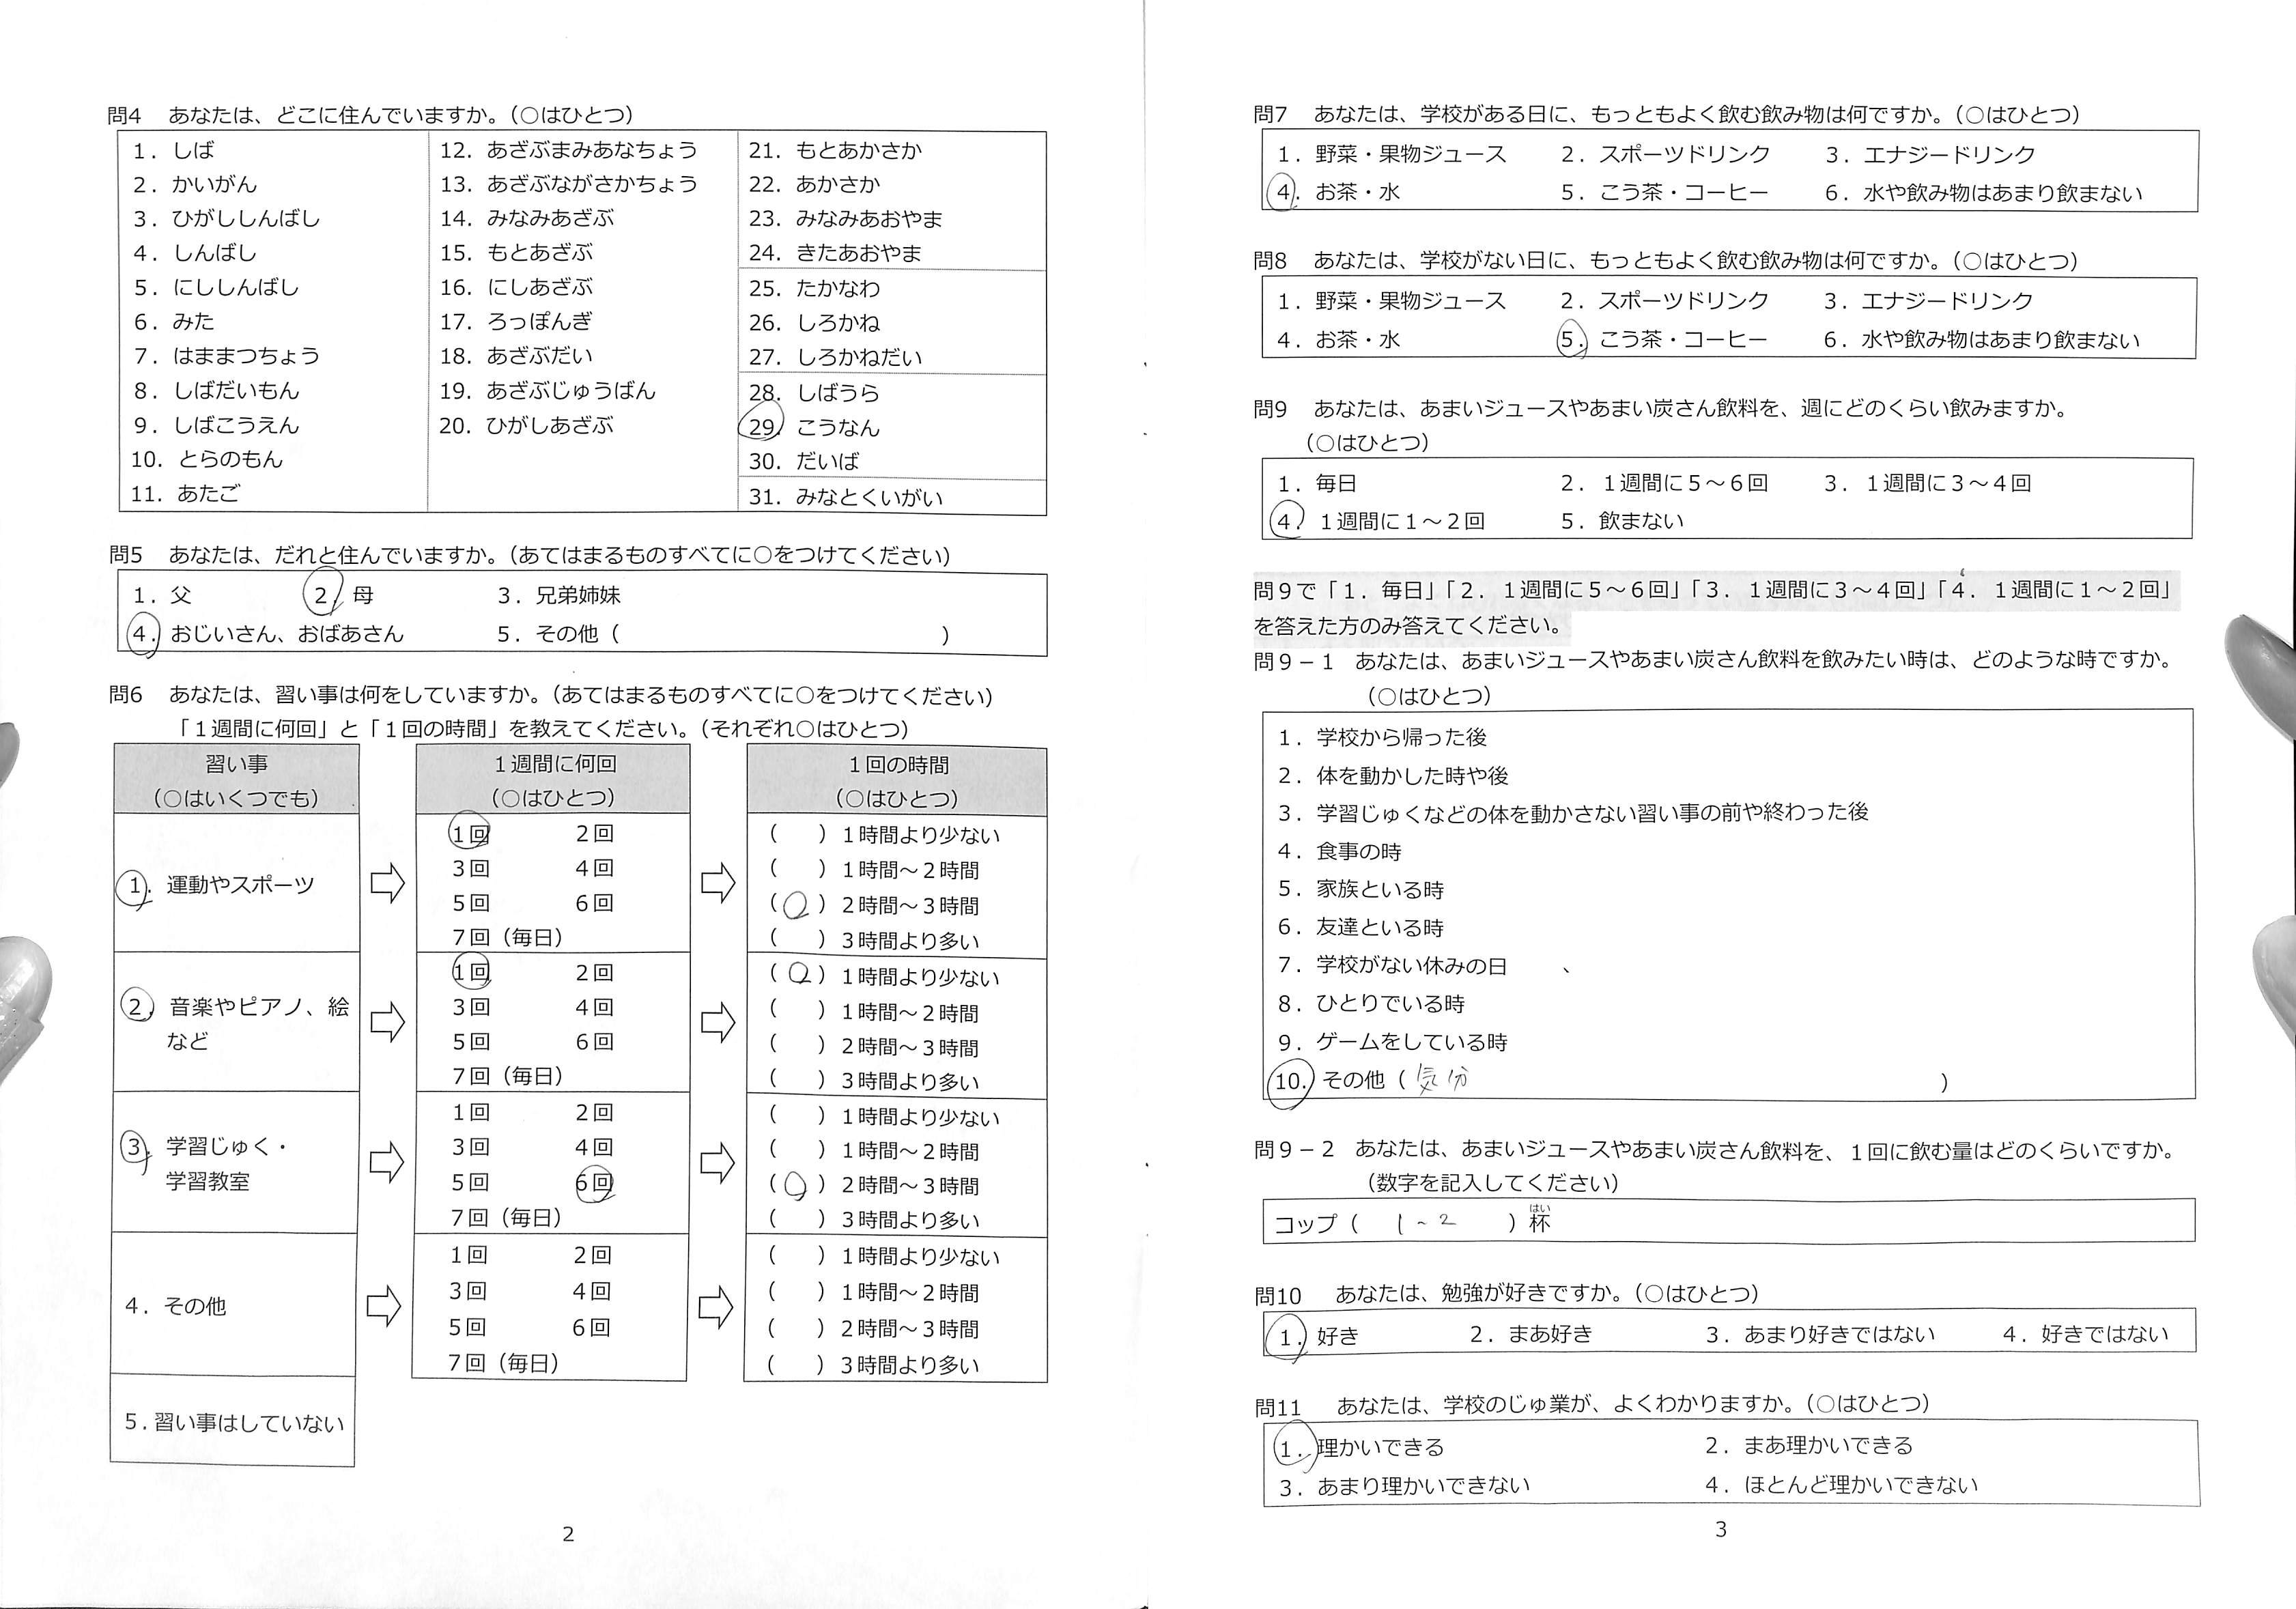 問4 あなたは、どこに住んでいますか。（○はひとつ）
1．しば
2．かいがん
3．ひがししんばし
4．しんばし
5．にししんばし
6．みた
7．はままつちょう
8．しばだいもん
9．しばこうえん
10．とらのもん
11．あたご
12．あざぶまみあなちょう
13．あざぶながさかちょう
14．みなみあざぶ
15．もとあざぶ
16．にしあざぶ
17．ろっぽんぎ
18．あざぶだい
19．あざぶじゅうばん
20．ひがしあざぶ
21．もとあかさか
22．あかさか
23．みなみあおやま
24．きたあおやま
25．たかなわ
26．しろかね
27．しろかねだい
28．しばうら
29．こうなん
30．だいば
31．みなとくいがい
問5 あなたは、だれと住んでいますか。（あてはまるものすべてに○をつけてください）
1．父 2．母 3．兄弟姉妹
4．おじいさん、おばあさん 5．その他（ ）
問6 あなたは、習い事は何をしていますか。（あてはまるものすべてに○をつけてください）
「１週間に何回」と「１回の時間」を教えてください。（それぞれ○はひとつ）
習い事
（○はいくつでも）
１週間に何回
（○はひとつ）
１回の時間
（○はひとつ）
1．運動やスポーツ
1回 2回
3回 4回
5回 6回
7回（毎日）
（ ）１時間より少ない
（ ）１時間～２時間
（○）２時間～３時間
（ ）３時間より多い
2．音楽やピアノ、絵
など
1回 2回
3回 4回
5回 6回
7回（毎日）
（○）１時間より少ない
（ ）１時間～２時間
（ ）２時間～３時間
（ ）３時間より多い
3．学習じゅく・
学習教室
1回 2回
3回 4回
5回 6回
7回（毎日）
（ ）１時間より少ない
（ ）１時間～２時間
（○）２時間～３時間
（ ）３時間より多い
4．その他
1回 2回
3回 4回
5回 6回
7回（毎日）
（ ）１時間より少ない
（ ）１時間～２時間
（ ）２時間～３時間
（ ）３時間より多い
5．習い事はしていない
2
問7 あなたは、学校がある日に、もっともよく飲む飲み物は何ですか。（○はひとつ）
1．野菜・果物ジュース 2．スポーツドリンク 3．エナジードリンク
4．お茶・水 5．こう茶・コーヒー 6．水や飲み物はあまり飲まない
問8 あなたは、学校がない日に、もっともよく飲む飲み物は何ですか。（○はひとつ）
1．野菜・果物ジュース 2．スポーツドリンク 3．エナジードリンク
4．お茶・水 5．こう茶・コーヒー 6．水や飲み物はあまり飲まない
問9 あなたは、あまいジュースやあまい炭さん飲料を、週にどのくらい飲みますか。
（○はひとつ）
1．毎日 2．１週間に５～６回 3．１週間に３～４回
4．１週間に１～２回 5．飲まない
問９で「１．毎日」「２．１週間に５～６回」「３．１週間に３～４回」「４．１週間に１～２回」
を答えた方のみ答えてください。
問９－１ あなたは、あまいジュースやあまい炭さん飲料を飲みたい時は、どのような時ですか。
（○はひとつ）
1．学校から帰った後
2．体を動かした時や後
3．学習じゅくなどの体を動かさない習い事の前や終わった後
4．食事の時
5．家族といる時
6．友達といる時
7．学校がない休みの日
8．ひとりでいる時
9．ゲームをしている時
10．その他（ 気分 ）
問９－２ あなたは、あまいジュースやあまい炭さん飲料を、１回に飲む量はどのくらいですか。
（数字を記入してください）
はい
コップ（ 1～2 ）杯
問10 あなたは、勉強が好きですか。（○はひとつ）
1．好き 2．まあ好き 3．あまり好きではない 4．好きではない
問11 あなたは、学校のじゅ業が、よくわかりますか。（○はひとつ）
1．理かいできる 2．まあ理かいできる
3．あまり理かいできない 4．ほとんど理かいできない
3